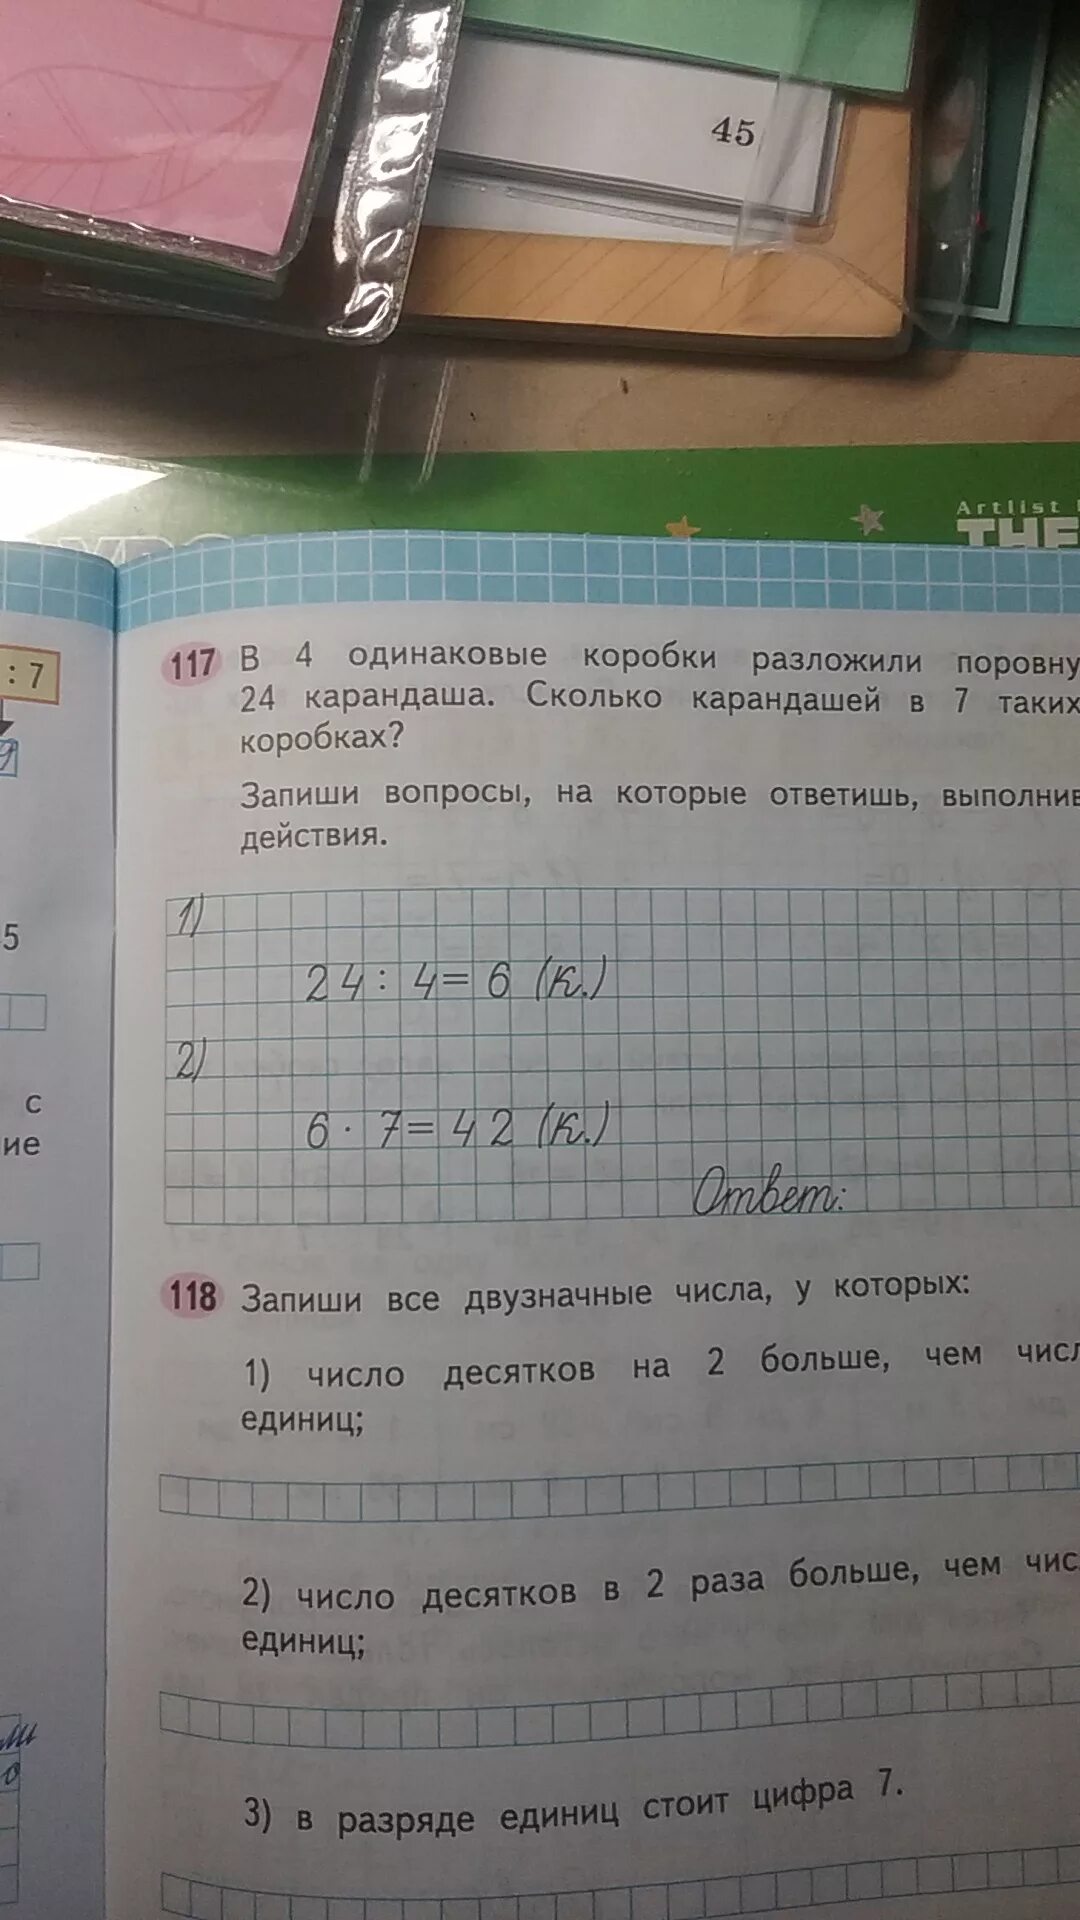 45
Artlist
THE
: 7
9
117 В 4 одинаковые коробки разложили поровну
24 карандаша. Сколько карандашей в 7 таких
коробках?
Запиши вопросы, на которые ответишь, выполнив
действия.
1)
24 : 4 = 6 (к.)
2)
6 · 7 = 42 (к.)
Ответ:
5
с
ие
118 Запиши все двузначные числа, у которых:
1) число десятков на 2 больше, чем чис
единиц;
2) число десятков в 2 раза больше, чем чис
единиц;
ми
о
3) в разряде единиц стоит цифра 7.